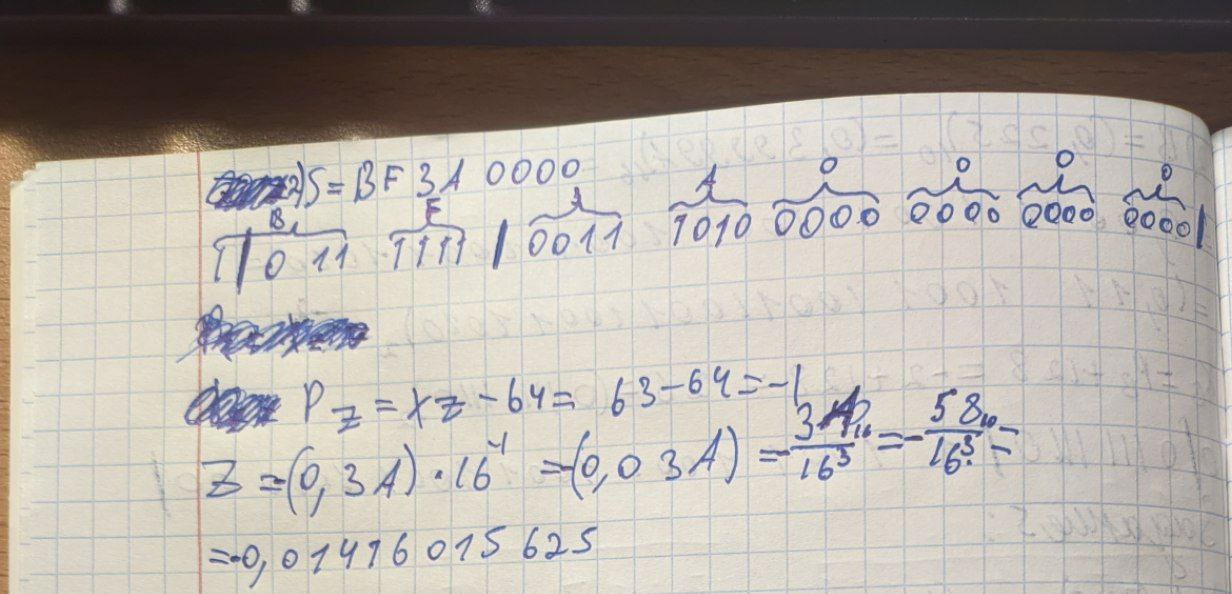 2) S = BF 3A 0000
B F 3 A 0 0 0 0
1 | 0 11 1111 | 0011 1010 0000 0000 0000 0000 |
P z = Xz - 64 = 63 - 64 = -1
Z = -(0,3A) · 16^-1 = -(0,03A) = -3A₁₆/16³ = -58₁₀/16³ =
= -0,01416015625